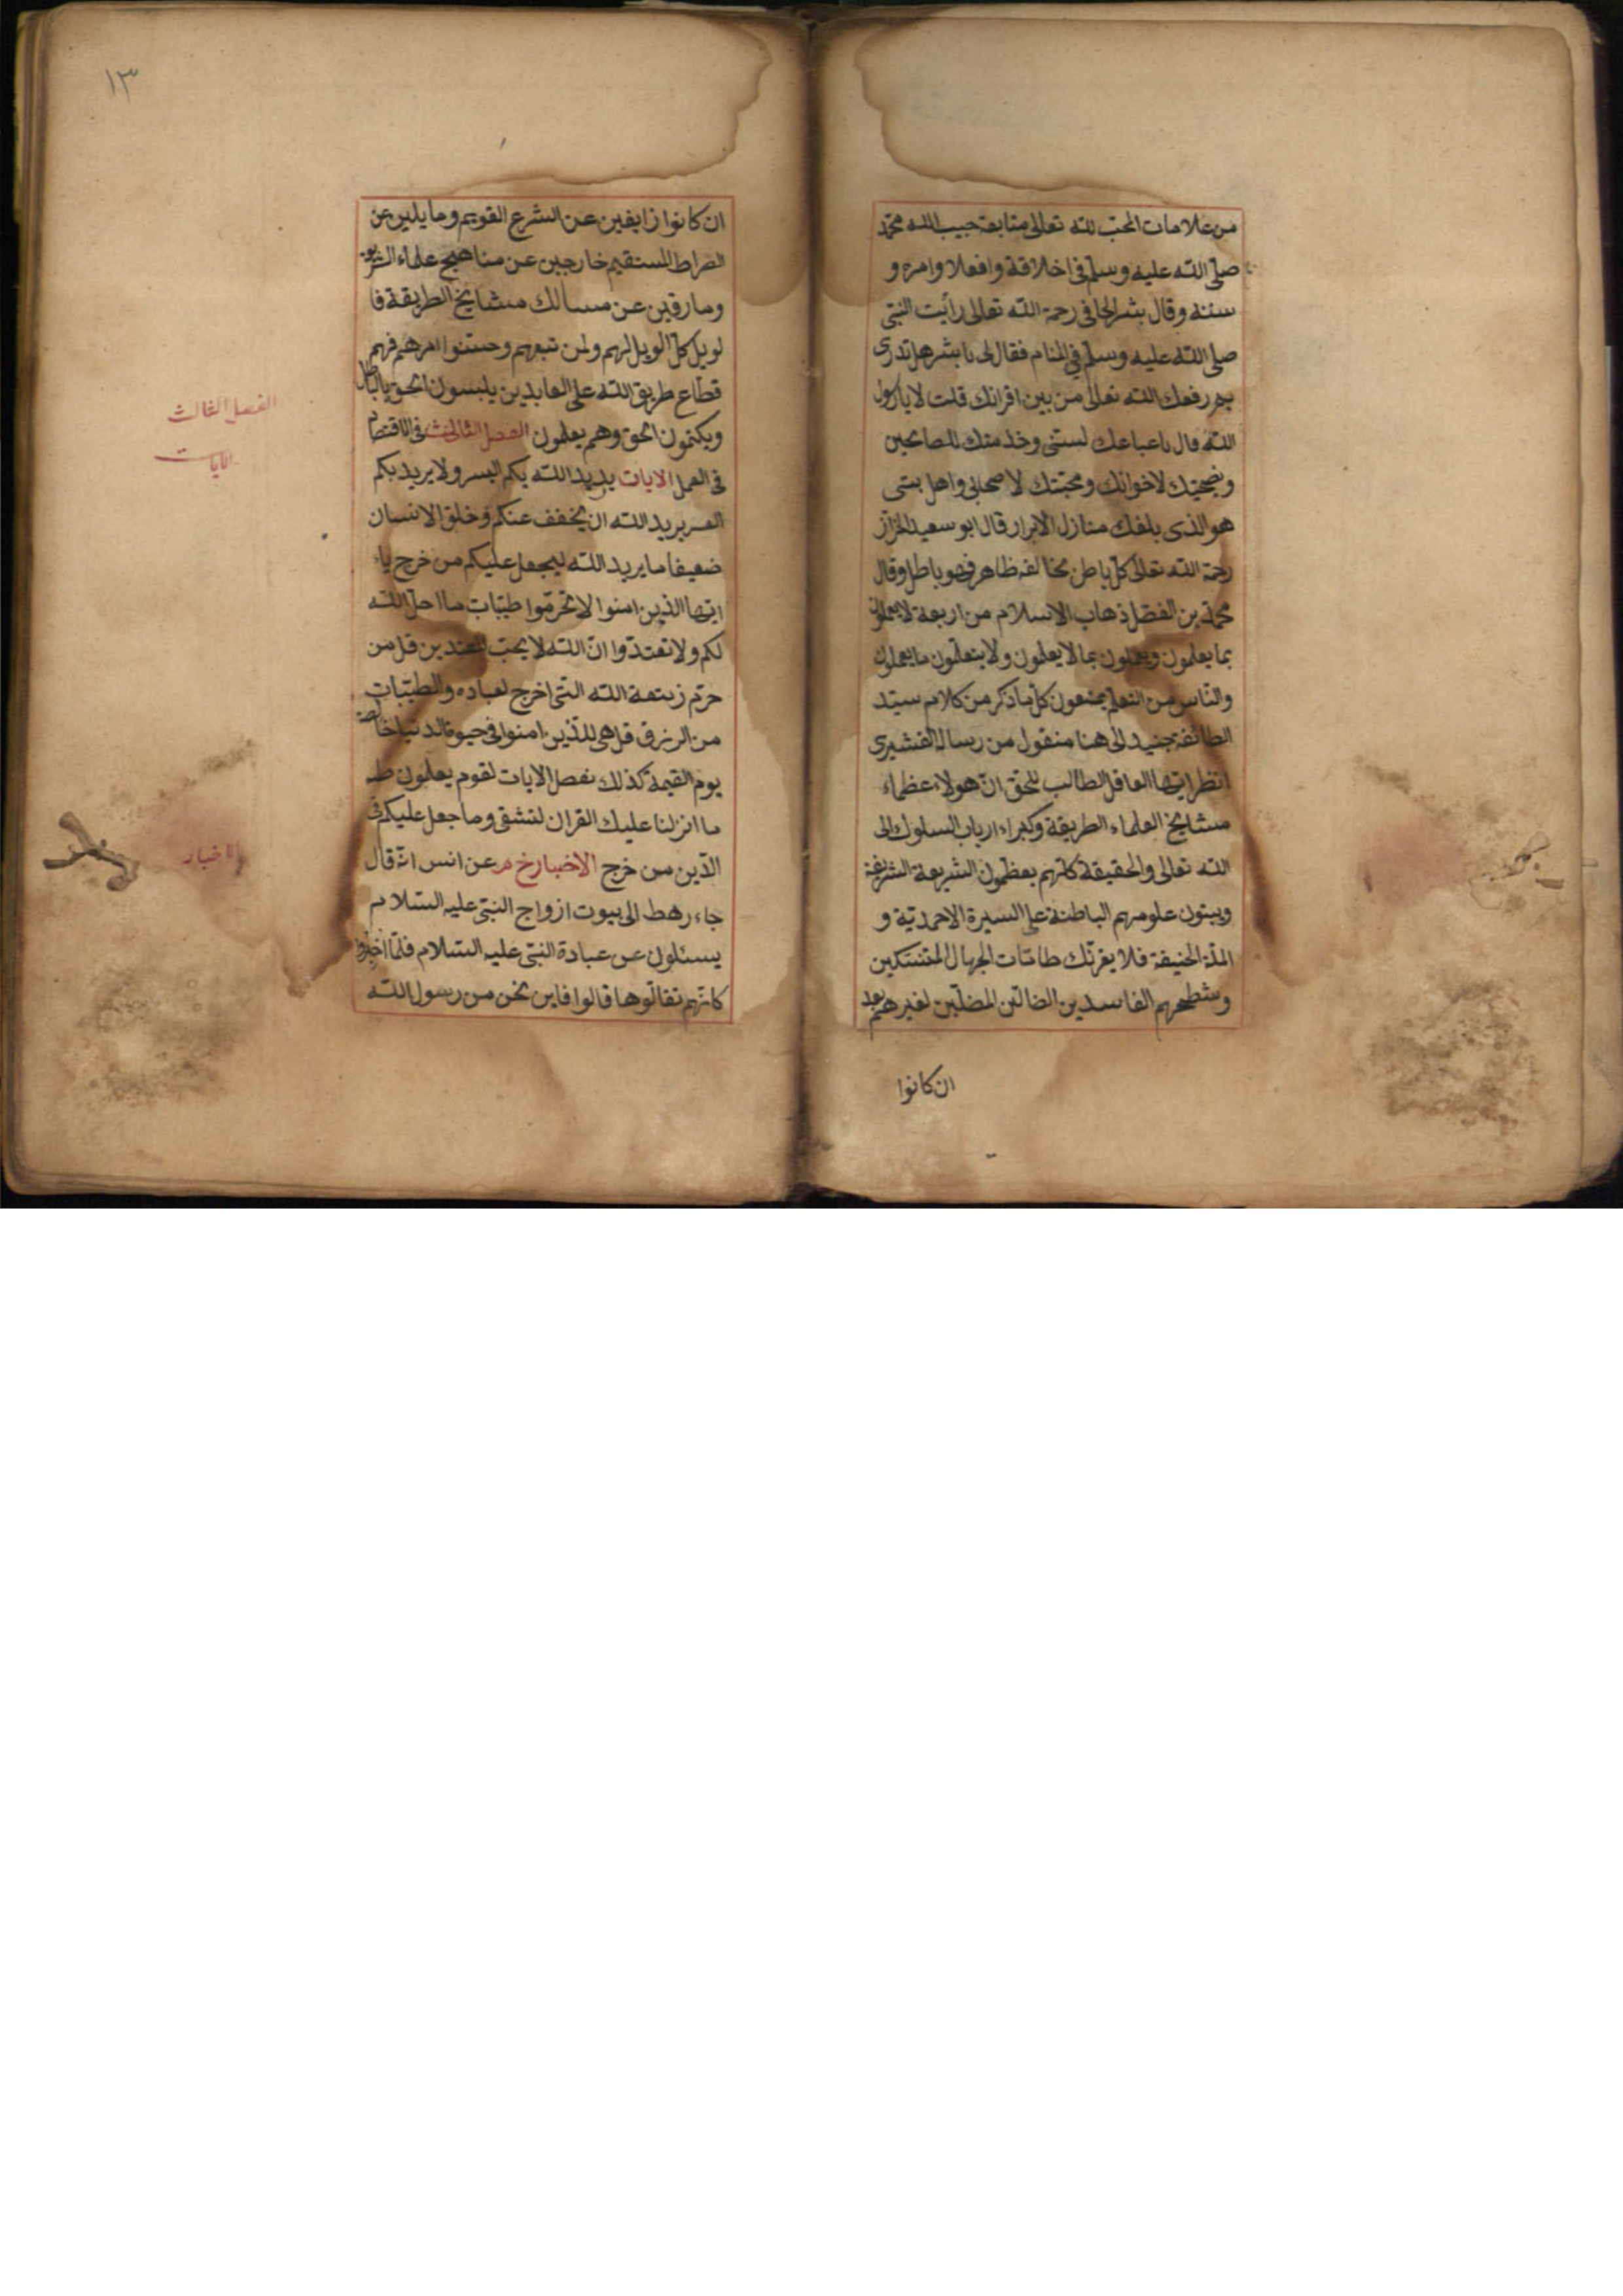 من علامات المحب لله تعالى متابعة حبيب الله محمد
صلى الله عليه وسلم في اخلاقه وافعلا وامره و
سننه وقال بشر الحافى رحمة الله تعالى رأيت النبى
صلى الله عليه وسلم في المنام فقال لى يا بشر هل تدرى
بم رفعك الله تعالى من بين اقرانك قلت لا يا رسول
الله قال باعباعك لسنتى وخدمتك للصالحين
ونصيحتك لاخوانك ومحبتك لاصحابى واهل بيتى
هو الذى بلغك منازل الابرار قال ابو سعيد الخراز
رحمة الله تعالى كل باطن مخالفه ظاهر فهو باطل وقال
محمد بن الفضل ذهاب الاسلام من اربعة لا يعملون
بما يعلمون ويعملون بما لا يعلمون ولا يتعلمون ما يعملون
والناس من التعلم يمنعون كل ما ذكر من كلام سيد
الطائفة جنيد الى هنا منقول من رسالة القشيرى
انظر ايها العاقل الطالب للحق ان هولاء عظماء
مشايخ العلماء الطريقة وكبراء ارباب السلوك الى
الله تعالى والحقيقة كلهم يعظمون الشريعة الشريفة
ويبنون علومهم الباطنة على السيرة الاحمدية و
الملة الحنيفة فلا يغرنك طامات الجهال المتنسكين
وشطحهم الفاسدين الضالين المضلين لغيرهم بعد
ان كانوا
١٣
ان كانوا زايفين عن الشرع القويم وما يلين عن
الصراط المستقيم خارجين عن مناهج علماء الشريعة
ومارقين عن مسالك مشايخ الطريقة فا
لويل كل الويل لهم ولمن تبعهم وحسنوا امرهم فهم
قطاع طريق الله على العابدين يلبسون الحق بالباطل
ويكتمون الحق وهم يعلمون الفصل الثالث فى الاقتصاد
فى العمل الايات يريد الله بكم اليسر ولا يريد بكم
العسر يريد الله ان يخفف عنكم وخلق الانسان
ضعيفا ما يريد الله ليجعل عليكم من حرج ياء
ايها الذين امنوا لا تحرموا طيبات ما احل الله
لكم ولا تعتدوا ان الله لا يحب المعتدين قل من
حرم زينة الله التى اخرج لعباده والطيبات
من الرزق قل هى للذين امنوا فى حيوة الدنيا خالصة
يوم القيمة كذلك نفصل الايات لقوم يعلمون طه
ما انزلنا عليك القران لتشقى وما جعل عليكم فى
الدين من خرج الاخبار خ م عن انس انه قال
جاء رهط الى بيوت ازواج النبى عليه السلام
يسئلون عن عبادة النبى عليه السلام فلما اخبروا
كانهم تقالوها قالوا فاين نحن من رسول الله
الفصل الثالث
الايات
الاخبار